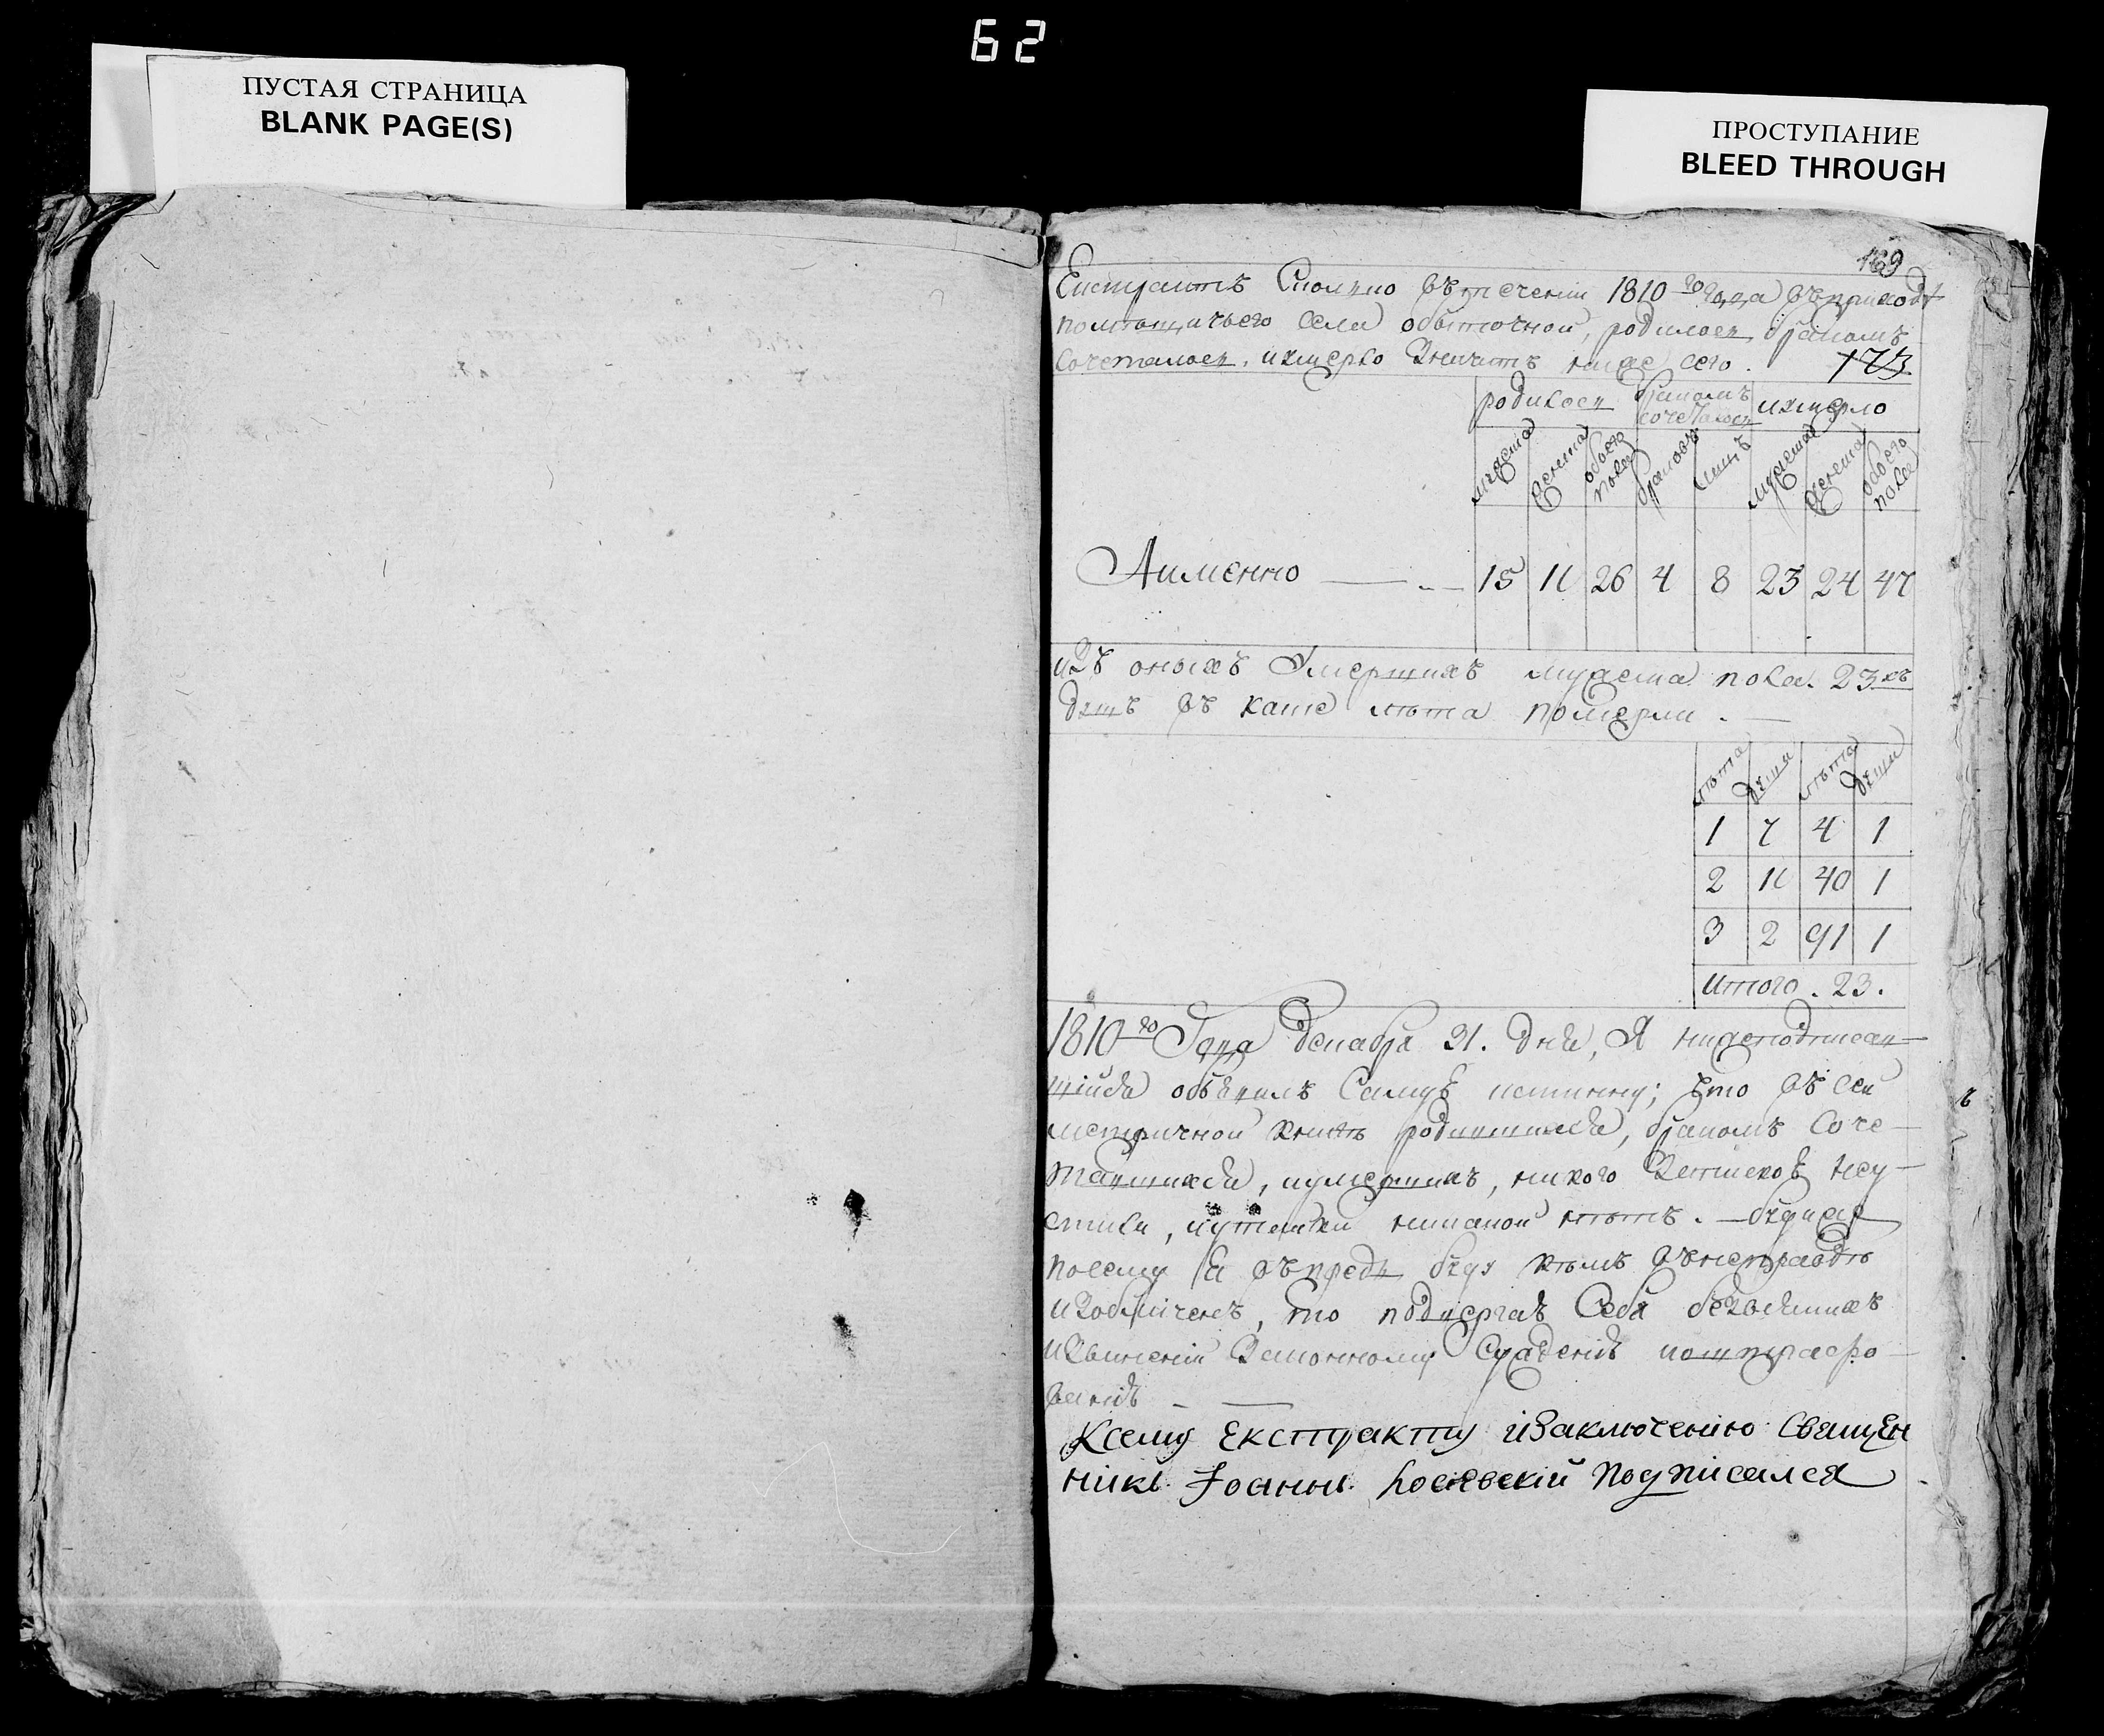 62
ПУСТАЯ СТРАНИЦА
BLANK PAGE(S)
ПРОСТУПАНИЕ
BLEED THROUGH
169
Екстрактъ Сколько въ течении 1810го года въ приходѣ
помѣщичьего села обыточной, родилось бракомъ
сочеталось, иумерло Значитъ ниже сего.
173
родилось бракомъ сочеталось иумерло
мужеска женска обоего пола браковъ лицъ мужеска женска обоего пола
Аименно 15 11 26 4 8 23 24 47
изъ оныхъ Умершихъ мужеска пола 23хъ
душъ въ какие лѣта померли.
лѣта души лѣта души
1 7 4 1
2 11 40 1
3 2 91 1
Итого. 23.
1810го Года декабря 31. дня, Я нижеподписав-
шійся объявилъ Самую истинну; что въ сей
метричной книгѣ родившихся, бракомъ Соче-
тавшихся, иумершихъ, никого
никакой нѣтъ.
посему я въпредь буду кѣмъ внеправдѣ
изобличенъ, то подвергаю Себя безовсякихъ
извиненій Законному Суждению иоштрафо-
ванию
Ксему Екстракту изаключению Священ
никъ Іоаннъ подписался